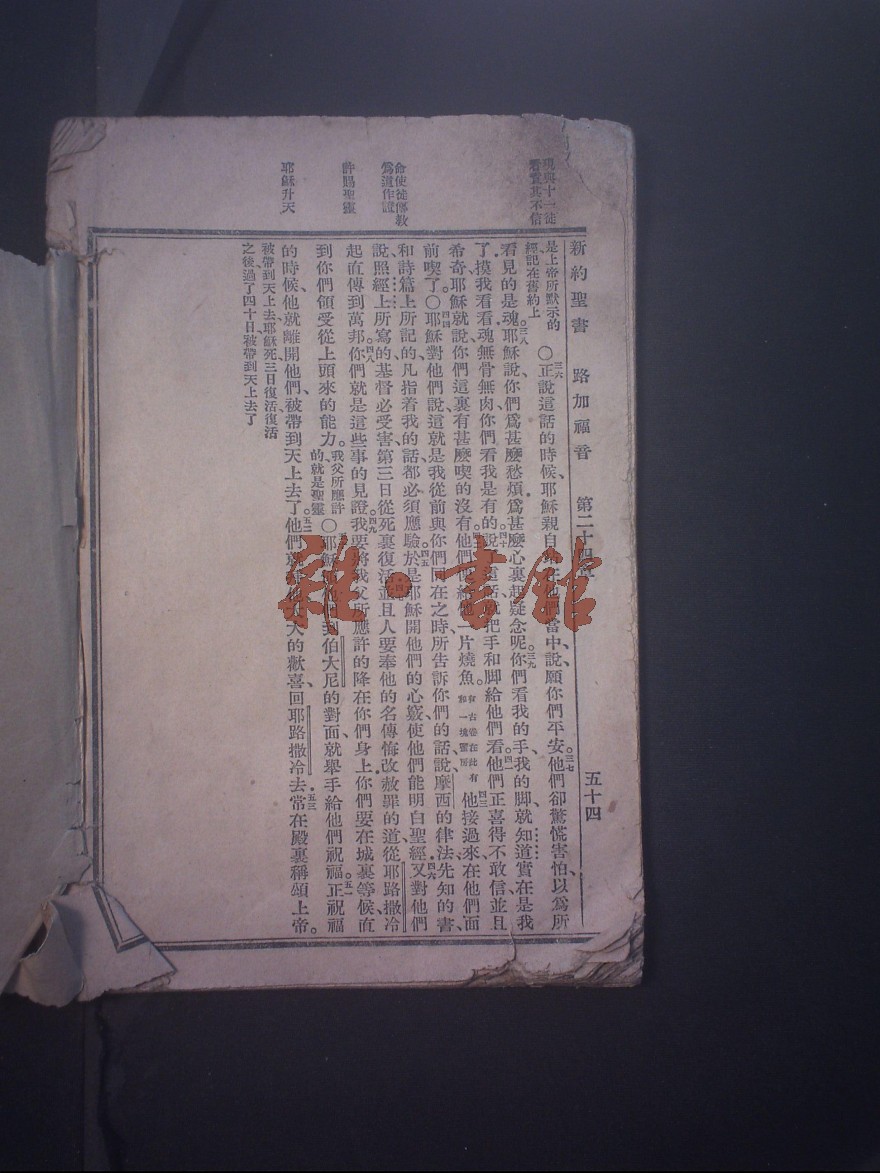 新約聖書 路加福音 第二十四章 五十四
現與十一徒
看責其不信
命使徒傳教
爲道作證
許賜聖靈
耶穌升天
是上帝所默示的
經記在舊約上
○三六正說這話的時候、耶穌親自站在他們當中說、願你們平安。三七他們卻驚慌害怕、以爲所
看見的是魂。三八耶穌說、你們爲甚麼愁煩、爲甚麼心裏起疑念呢。三九你們看我的手、我的脚、就知道實在是我
了、摸我看看、魂無骨無肉、你們看我是有的。四十說這話就把手和脚給他們看。四一他們正喜得不敢信、並且
希奇、耶穌就說、你們這裏有甚麼喫的沒有。他們便給他一片燒魚。有古卷在此有和一塊蜜房四三他接過來、在他們面
前喫了。○四四耶穌對他們說、這就是我從前與你們同在之時、所告訴你們的話、說摩西的律法、先知的書、
和詩篇上所記的、凡指着我的話、都必須應驗。四五於是耶穌開他們的心竅、使他們能明白聖經。四六又對他們
說、照經上所寫的、基督必受害、第三日從死裏復活。四七並且人要奉他的名、傳悔改赦罪的道、從耶路撒冷
起直傳到萬邦。四八你們就是這些事的見證。四九我要將我父所應許的降在你們身上、你們要在城裏等候、直
到你們領受從上頭來的能力。我父所應許的就是聖靈○耶穌 他們到伯大尼的對面、就舉手給他們祝福。五一正祝福
的時候、他就離開他們、被帶到天上去了。五二他們就 他大大的歡喜、回耶路撒冷去。五三常在殿裏稱頌上帝。
被帶到天上去、耶穌死三日復活、復活
之後過了四十日、被帶到天上去了
雜·書館